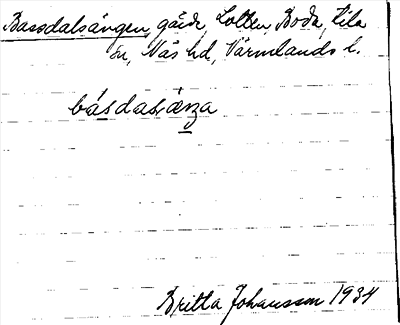 Bassdalsängen, gård, Lotten Boda, Kila
sn, Näs hd, Värmlands l.
básdalsæŋa
Britta Johansson 1934